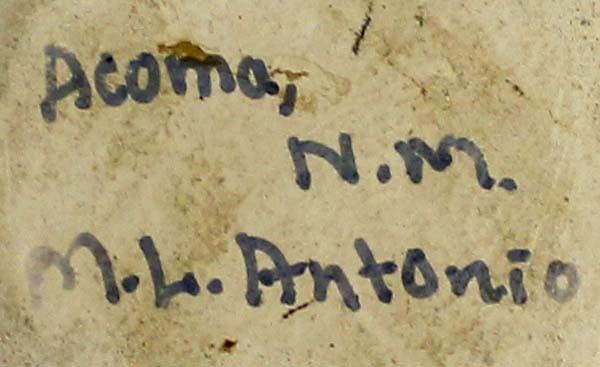 Acoma,
N.M.
M.L. Antonio